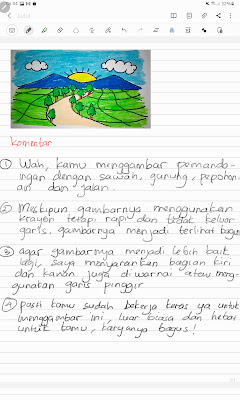 komentar
① Wah, kamu menggambar pemanda-
ngan dengan sawah, gunung, pepohon-
an dan jalan.
② Meskipun gambarnya menggunakan
krayon tetapi rapi dan tidak keluar
garis, gambarnya menjadi terlihat bagus
③ agar gambarnya menjadi lebih baik
lagi, saya menyarankan bagian kiri
dan kanan juga di warnai atau meng-
gunakan garis pinggir
④ pasti kamu sudah bekerja keras ya untuk
menggambar ini, luar biasa dan hebat
untuk kamu, karyanya bagus!